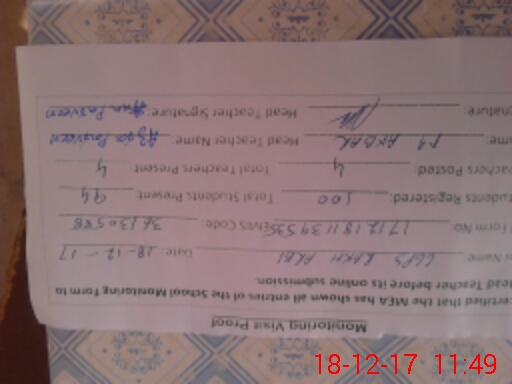 Monitoring Visit Proof
certified that the MEA has shown all entries of the School Monitoring Form to
Head Teacher before its online submission.
Name: GGPS Date: 18-12-17
Form No EMIS Code: 36130588
Students Registered: 100 Total Students Present: 94
Teachers Posted: 4 Total Teachers Present: 4
AKBAR Head Teacher Name: Parveen
Head Teacher Signature: Parveen
18-12-17 11:49